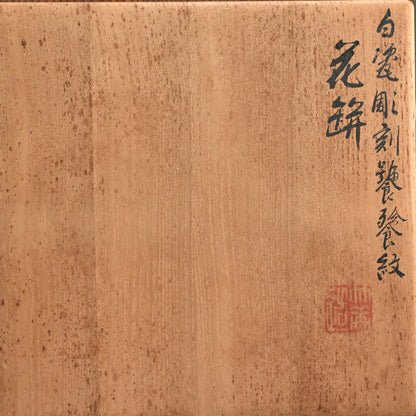 白瓷彫刻饕餮紋
花缾